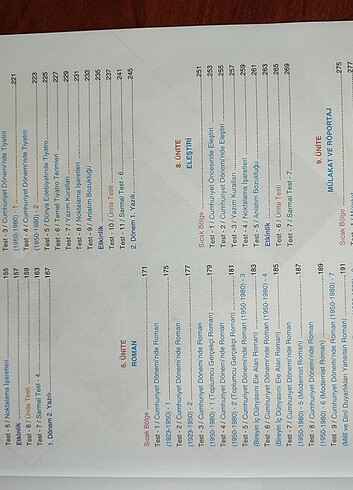 Test - 5 / Noktalama İşaretleri 155
Etkinlik 157
Test - 6 / Ünite Testi 159
Test - 7 / Sarmal Test - 4 163
1. Dönem 2. Yazılı 167
6. ÜNİTE
ROMAN
Sıcak Bölge 171
Test - 1 / Cumhuriyet Dönemi'nde Roman
(1923-1950) - 1 175
Test - 2 / Cumhuriyet Dönemi'nde Roman
(1923-1950) - 2 177
Test - 3 / Cumhuriyet Dönemi'nde Roman
(1950-1980) - 1 (Toplumcu Gerçekçi Roman) 179
Test - 4 / Cumhuriyet Dönemi'nde Roman
(1950-1980) - 2 (Toplumcu Gerçekçi Roman) 181
Test - 5 / Cumhuriyet Dönemi'nde Roman (1950-1980) - 3
(Bireyin İç Dünyasını Ele Alan Roman) 183
Test - 6 / Cumhuriyet Dönemi'nde Roman (1950-1980) - 4
(Bireyin İç Dünyasını Ele Alan Roman) 185
Test - 7 / Cumhuriyet Dönemi'nde Roman
(1950-1980) - 5 (Modernist Roman) 187
Test - 8 / Cumhuriyet Dönemi'nde Roman
(1950-1980) - 6 (Modernist Roman) 189
Test - 9 / Cumhuriyet Dönemi'nde Roman (1950-1980) - 7
(Millî ve Dinî Duyarlılıkları Yansıtan Roman) 191
Test - 3 / Cumhuriyet Dönemi'nde Tiyatro
(1950-1980) - 1 221
Test - 4 / Cumhuriyet Dönemi'nde Tiyatro
(1950-1980) - 2 223
Test - 5 / Dünya Edebiyatında Tiyatro 225
Test - 6 / Temel Tiyatro Terimleri 227
Test - 7 / Yazım Kuralları 229
Test - 8 / Noktalama İşaretleri 231
Test - 9 / Anlatım Bozukluğu 233
Etkinlik 235
Test - 10 / Ünite Testi 237
Test - 11 / Sarmal Test - 6 241
2. Dönem 1. Yazılı 245
8. ÜNİTE
ELEŞTİRİ
Sıcak Bölge 251
Test - 1 / Cumhuriyet Öncesinde Eleştiri 253
Test - 2 / Cumhuriyet Dönemi'nde Eleştiri 255
Test - 3 / Yazım Kuralları 257
Test - 4 / Noktalama İşaretleri 259
Test - 5 / Anlatım Bozukluğu 261
Etkinlik 263
Test - 6 / Ünite Testi 265
Test - 7 / Sarmal Test - 7 269
9. ÜNİTE
MÜLAKAT VE RÖPORTAJ
Sıcak Bölge 275
277